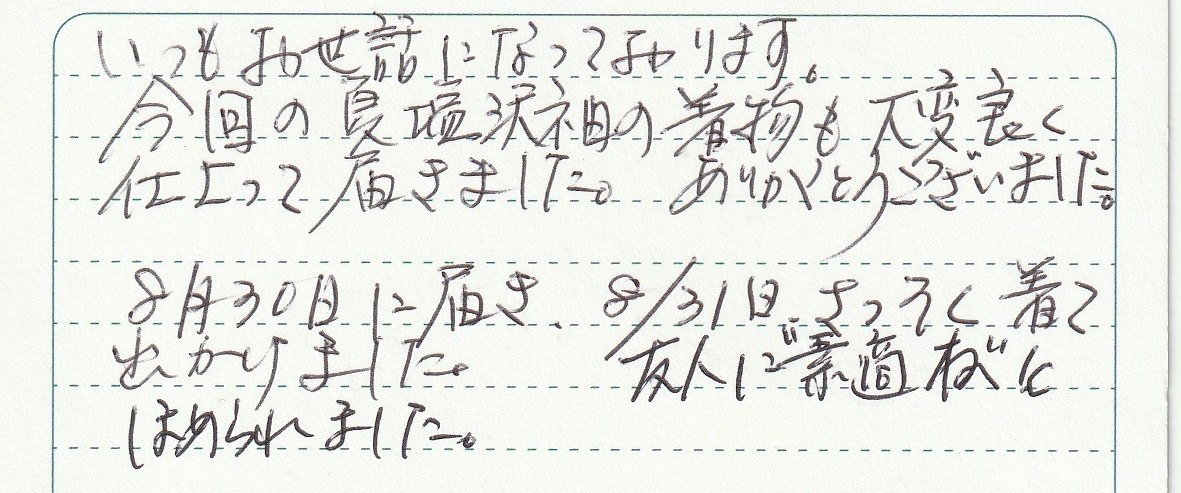 いつもお世話になっております。
今回の夏塩沢紬の着物も大変良く
仕上って届きました。ありがとうございました。
8月30日に届き、8/31日、さっそく着て
出かけました。友人に"素適ね"と
ほめられました。